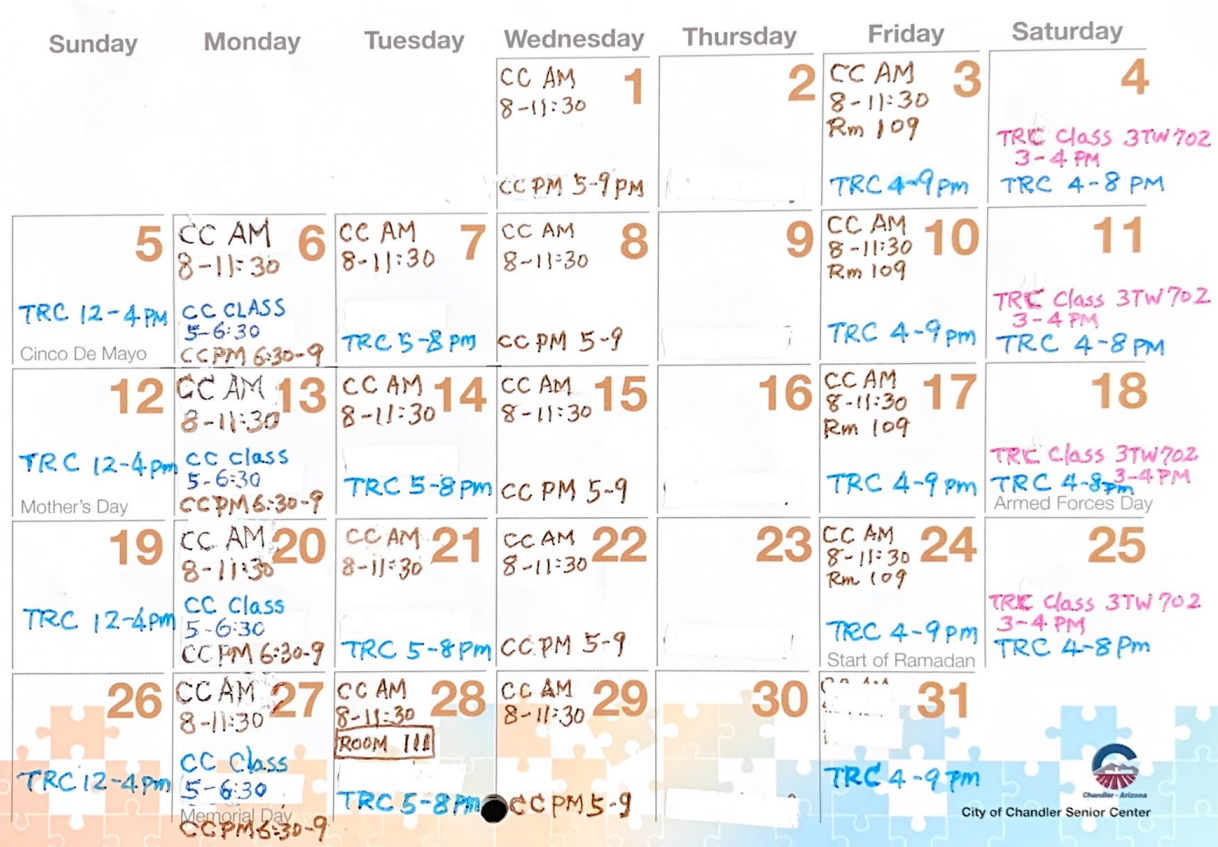 Sunday Monday Tuesday Wednesday Thursday Friday Saturday
1
CC AM
8-11:30
CC PM 5-9 PM
2
3
CC AM
8-11:30
Rm 109
TRC 4-9 pm
4
TRC Class 3TW702
3-4 PM
TRC 4-8 PM
5
TRC 12-4 PM
Cinco De Mayo
6
CC AM
8-11:30
CC CLASS
5-6:30
CC PM 6:30-9
7
CC AM
8-11:30
TRC 5-8 pm
8
CC AM
8-11:30
CC PM 5-9
9
10
CC AM
8-11:30
Rm 109
TRC 4-9 pm
11
TRC Class 3TW702
3-4 PM
TRC 4-8 PM
12
TRC 12-4 pm
Mother's Day
13
CC AM
8-11:30
CC Class
5-6:30
CC PM 6:30-9
14
CC AM
8-11:30
TRC 5-8 pm
15
CC AM
8-11:30
CC PM 5-9
16
17
CC AM
8-11:30
Rm 109
TRC 4-9 pm
18
TRC Class 3TW702
3-4 PM
TRC 4-8 pm
Armed Forces Day
19
TRC 12-4 pm
20
CC AM
8-11:30
CC Class
5-6:30
CC PM 6:30-9
21
CC AM
8-11:30
TRC 5-8 pm
22
CC AM
8-11:30
CC PM 5-9
23
24
CC AM
8-11:30
Rm 109
TRC 4-9 pm
Start of Ramadan
25
TRC Class 3TW702
3-4 PM
TRC 4-8 pm
26
TRC 12-4 pm
27
CC AM
8-11:30
CC Class
5-6:30
Memorial Day
CC PM 6:30-9
28
CC AM
8-11:30
ROOM 111
TRC 5-8 pm
29
CC AM
8-11:30
CC PM 5-9
30
31
TRC 4-9 pm
Chandler - Arizona
City of Chandler Senior Center